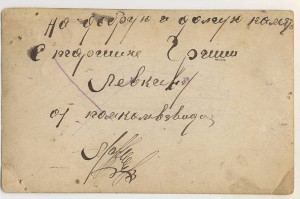 На добрую и долгую память
Старшине Грише
Левкину
от помкомвзвода